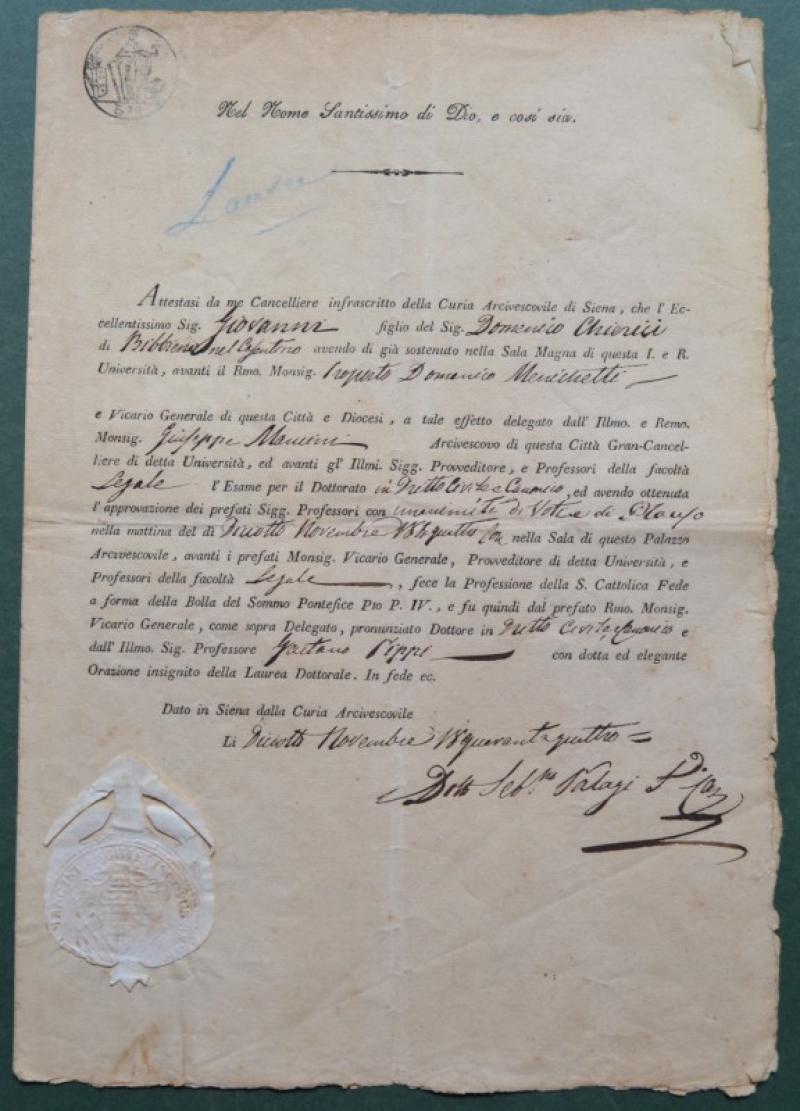 Nel Nome Santissimo di Dio, e così sia.
Attestasi da me Cancelliere infrascritto della Curia Arcivescovile di Siena, che l' Ec-
cellentissimo Sig. Giovanni figlio del Sig. Domenico Chierici
di Bibbiena nel Casentino avendo di già sostenuto nella Sala Magna di questa I. e R.
Università, avanti il Rmo. Monsig. Proposto Domenico Menichetti
e Vicario Generale di questa Città e Diocesi, a tale effetto delegato dall' Illmo. e Remo.
Monsig. Giuseppe Mancini Arcivescovo di questa Città Gran-Cancel-
liere di detta Università, ed avanti gl' Illmi. Sigg. Provveditore, e Professori della facoltà
Legale l' Esame per il Dottorato in Dritto Civile e Canonico, ed avendo ottenuta
l' approvazione dei prefati Sigg. Professori con unanimità di Voti e di Plauso
nella mattina del dì Diciotto Novembre nella Sala di questo Palazzo
Arcivescovile, avanti i prefati Monsig. Vicario Generale, Provveditore di detta Università, e
Professori della facoltà Legale, fece la Professione della S. Cattolica Fede
a forma della Bolla del Sommo Pontefice Pio P. IV., e fu quindi dal prefato Rmo. Monsig.
Vicario Generale, come sopra Delegato, pronunziato Dottore in Dritto Civile e Canonico e
dall' Illmo. Sig. Professore Gaetano Pippi con dotta ed elegante
Orazione insignito della Laurea Dottorale. In fede ec.
Dato in Siena dalla Curia Arcivescovile
Li Diciotto Novembre 18quarantaquattro =
Dott. Seb.no Palagi